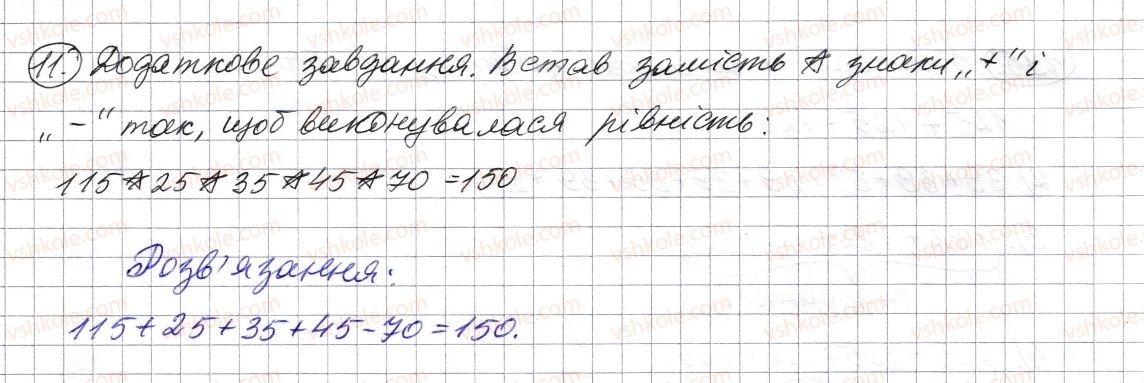 11. Додаткове завдання. Встав замість ☆ знаки „+“ і
„−“ так, щоб виконувалася рівність:
115☆25☆35☆45☆70=150
Розв'язання:
115+25+35+45-70=150.